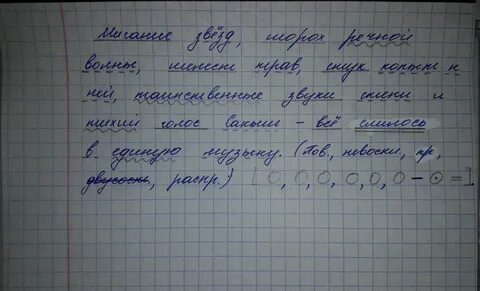 Мигание звёзд, шорох речной
волны, шелест трав, стук копыт к
ней, таинственные звуки степи и
тихий голос – всё слилось
в единую музыку. (Пов, невоскл, пр,
двусост, распр.) [О, О, О, О, О, О – ⊙ =].